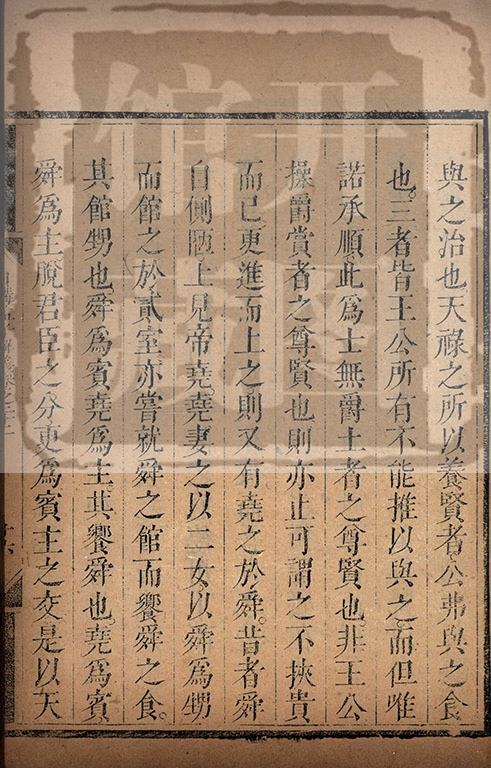 與之治也天祿之所以養賢者公弗與之食
也三者皆王公所有不能推以與之而但唯
諾承順此為士無爵土者之尊賢也非王公
操爵賞者之尊賢也則亦止可謂之不挾貴
而已更進而上之則又有堯之於舜昔者舜
自側陋上見帝堯堯妻之以二女以舜為甥
而館之於貳室亦嘗就舜之館而饗舜之食
其館甥也舜為賓堯為主其饗舜也堯為賓
舜為主脫君臣之分更為賓主之交是以天